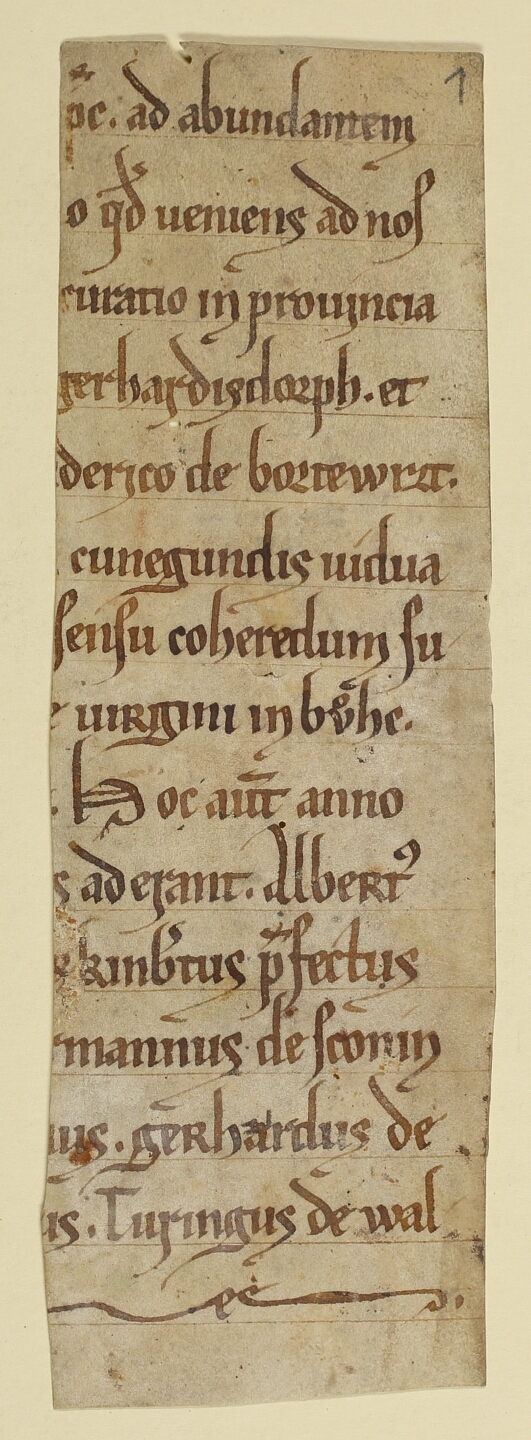 1
ad abundantem
o qđ ueniens ad nos
curatio in prouincia
gerhardisdorph. et
derico de bortewitz.
cunegundis uidua
sensu coheredum su
uirgini in bůhc.
Hoc aut̄ anno
s aderant. Albert᾿
kinb̄tus p̄fectus
mannus de sconin
us. gerhardus de
us. Turingus de wal